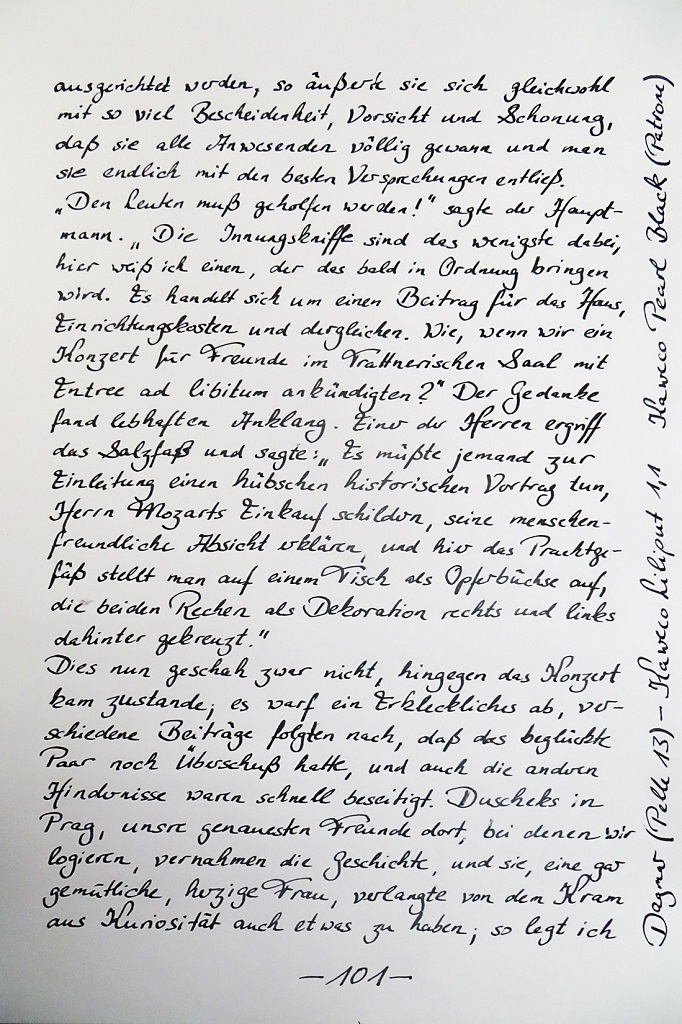 ausgerichtet werden, so äußerte sie sich gleichwohl
mit so viel Bescheidenheit, Vorsicht und Schonung,
daß sie alle Anwesenden völlig gewann und man
sie endlich mit den besten Versprechungen entließ.
„Den Leuten muß geholfen werden!" sagte der Haupt-
mann. „Die Innungskniffe sind das wenigste dabei,
hier weiß ich einen, der das bald in Ordnung bringen
wird. Es handelt sich um einen Beitrag für das Haus,
Einrichtungskosten und dergleichen. Wie, wenn wir ein
Konzert für Freunde im Trattnerischen Saal mit
Entree ad libitum ankündigten?" Der Gedanke
fand lebhaften Anklang. Einer der Herren ergriff
das Salzfaß und sagte: „Es müßte jemand zur
Einleitung einen hübschen historischen Vortrag tun,
Herrn Mozarts Einkauf schildern, seine menschen-
freundliche Absicht erklären, und hier das Prachtge-
fäß stellt man auf einem Tisch als Opferbüchse auf,
die beiden Rechen als Dekoration rechts und links
dahinter gekreuzt."
Dies nun geschah zwar nicht, hingegen das Konzert
kam zustande; es warf ein Erkleckliches ab, ver-
schiedene Beiträge folgten nach, daß das beglückte
Paar noch Überschuß hatte, und auch die andren
Hindernisse waren schnell beseitigt. Duscheks in
Prag, unsre genauesten Freunde dort, bei denen wir
logieren, vernahmen die Geschichte, und sie, eine gar
gemütliche, herzige Frau, verlangte von dem Kram
aus Kuriosität auch etwas zu haben; so legt ich
—101—
Dagmar (Pelle 13) – Kaweco Liliput 1,1 Kaweco Pearl Black (Patrone)